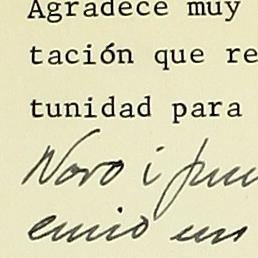 Agradece muy
tación que re
tunidad para
envio un